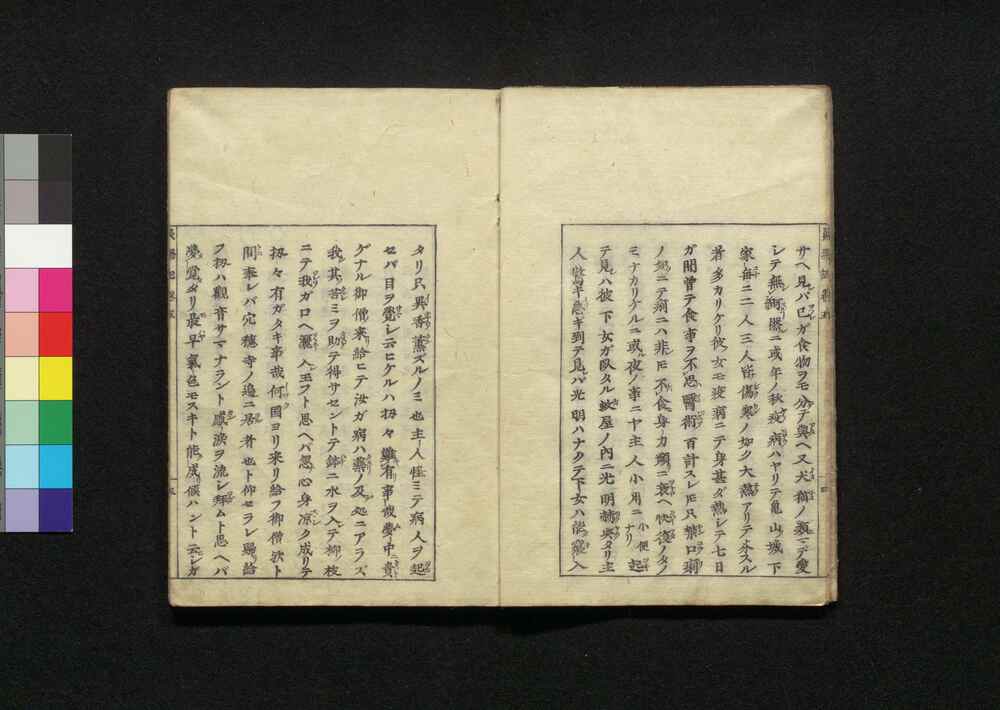 サヘ見バ已ガ食物ヲモ分テ與ヘ又犬猫ノ類マデ愛
シテ無御器ニ或年ノ秋疫病ハヤリテ亀山城下
家毎ニ二人三人皆傷寒ノ如ク大熱アリテ本スル
者多カリケリ彼女モ疫病ニテ身甚ダ熱シテ七日
ガ間曽テ食事ヲ不思醫術百計スレ𪜈只葉口弱
ノ ニテ病ニハ非𪜈不食身力頻ニ衰ヘ快復ノタノ
ミナカリケルニ或夜ノ事ニヤ主人小用ニ小便ナリ起
テ見ハ彼下女ガ臥タル蚊屋ノ内ニ光明赫奕タリ主
人驚キ急ギ到テ見バ光明ハナクテ下女ハ能寝入
四
タリ只異香薫ズルノミ也主人怪ミテ病人ヲ起
セバ目ヲ覺シ云ヒケルハ扨々難有事哉夢中貴
ゲナル御僧来給ヒテ汝ガ病ハ薬ノ及処ニアラズ
我其苦ミヲ助テ得サセントテ鉢ニ水ヲ入テ柳枝
ニテ我ガ口ヘ灑入玉フト思ヘバ忽心身凉ク成リテ
扨々有ガタキ事哉何国ヨリ来リ給フ御僧欤ト
問奉レバ穴穂寺ノ邉ニ居者也ト仰セラレ賜給
フ扨ハ觀音サマナラント感涙ヲ流シ拜ムト思ヘバ
夢覚タリ最早氣色モスキト能成候ハント云シガ
五